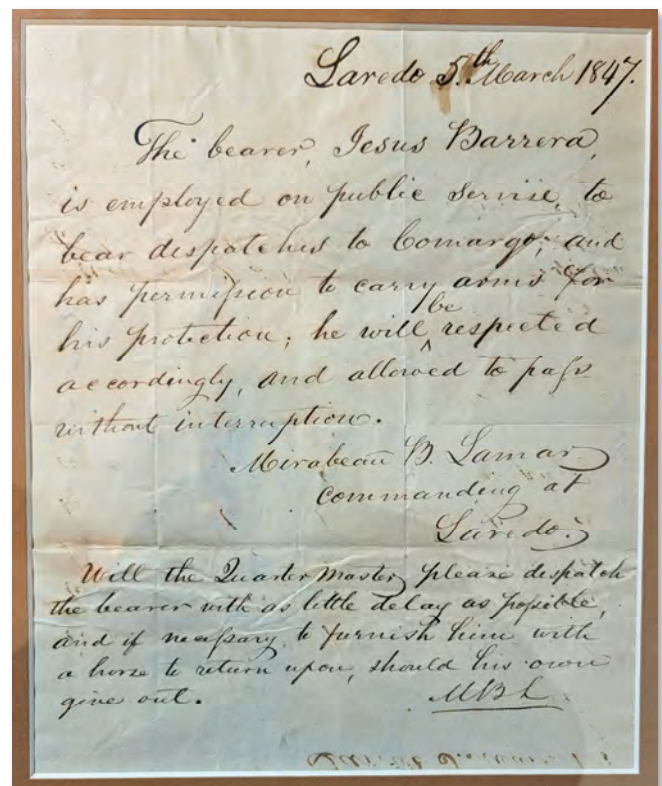 Laredo 5.th March 1847.
The bearer, Jesus Barrera,
is employed on public servise, to
bear despatches to Comargo; and
has permission to carry arms for
his protection; he will be respected
accordingly, and allowed to pass
without interruption.
Mirabeau B. Lamar
commanding at
Laredo.
Will the Quarter Master please despatch
the bearer with as little delay as possible,
and if nessessary to furnish him with
a horse to return upon, should his own
give out.
MBL.